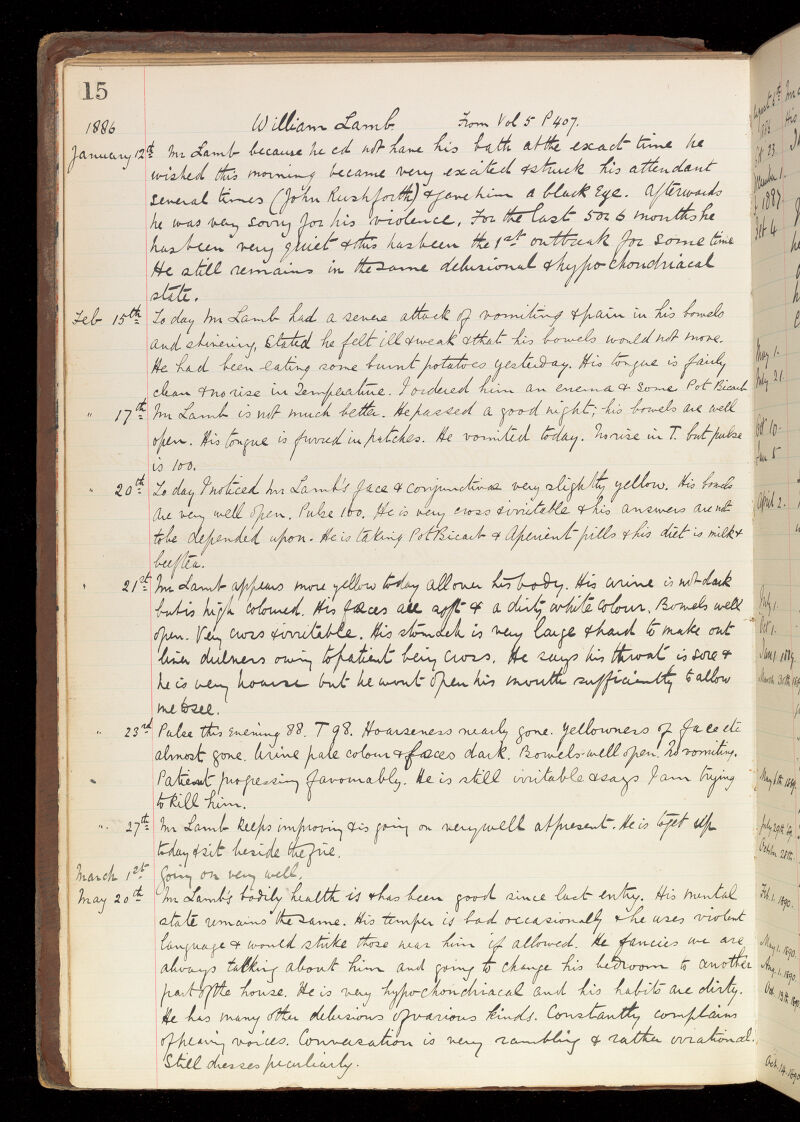 15
1886 William Lamb From Vol 5 P 407.
January 12th Mr Lamb because he cd not have his bath at the exact time he
wished this morning became very excited & struck his attendant
several times (John Rushforth) & gave him a black Eye. Afterwards
he was very sorry for his violence. For the last 5 or 6 months he
has been very quiet & this has been the 1st outbreak for some time
He still remains in the same delusional & hypochondriacal
state.
Feb 15th To day Mr Lamb had a severe attack of vomiting & pain in his bowels
and shivering, Stated he felt ill & weak & that his bowels would not move.
He had been eating some burnt potatoes yesterday. His tongue is fairly
clean & no rise in Temperature. I ordered him an enema & some Pot Bicarb
" 17th Mr Lamb is not much better. He passed a good night; his bowels are well
open. His tongue is furred in patches. He vomited today. No rise in T. but pulse
is 100.
" 20th To day I noticed Mr Lamb's face & conjunctivae very slightly yellow. His bowels
are very well open. Pulse 100. He is very cross & irritable & his answers are not
to be depended upon. He is taking Pot Bicarb & Aperient pills & his diet is milk &
beef tea.
" 21st Mr Lamb appears more yellow today all over his body. His urine is not dark
but is high coloured. His fæces are soft & a dirty white colour. Bowels well
open. Very cross & irritable. His stomach is very large & hard to make out
liver dulness owing to patient being cross. He says his throat is sore &
he is very hoarse but he wont open his mouth sufficiently to allow
me to see.
" 23rd Pulse this Evening 88. T 98. Hoarseness nearly gone. Yellowness of face etc
almost gone. Urine pale colour & fæces dark. Bowels well open. No vomiting.
Patient progressing favourably. He is still irritable & says I am trying
to kill him.
" 27th Mr Lamb keeps improving & is going on very well at present. He is to get up
today & sit beside the fire.
March 1st Going on very well.
May 20th Mr Lamb's bodily health is & has been good since last entry. His mental
state remains the same. His temper is bad occasionally & he uses violent
language & would strike those near him if allowed. He fancies we are
always talking about him and going to change his bedroom to another
part of the house. He is very hypochondriacal and his habits are dirty.
He has many other delusions of various kinds. Constantly complains
of hearing voices. Conversation is very rambling & rather irrational.
Still dresses peculiarly.
1887
Feb 4
May 1.
July 21
Oct 10.
Jan 5
April 2.
July 1.
Oct 1.
Jany 1 1889.
May 6th 1889.
July 29th 89.
October 28th.
Feb. 1. 1890.
May 1. 1890.
Aug. 1. 1890.
Oct. 13th 1890
Oct. 14. 1890